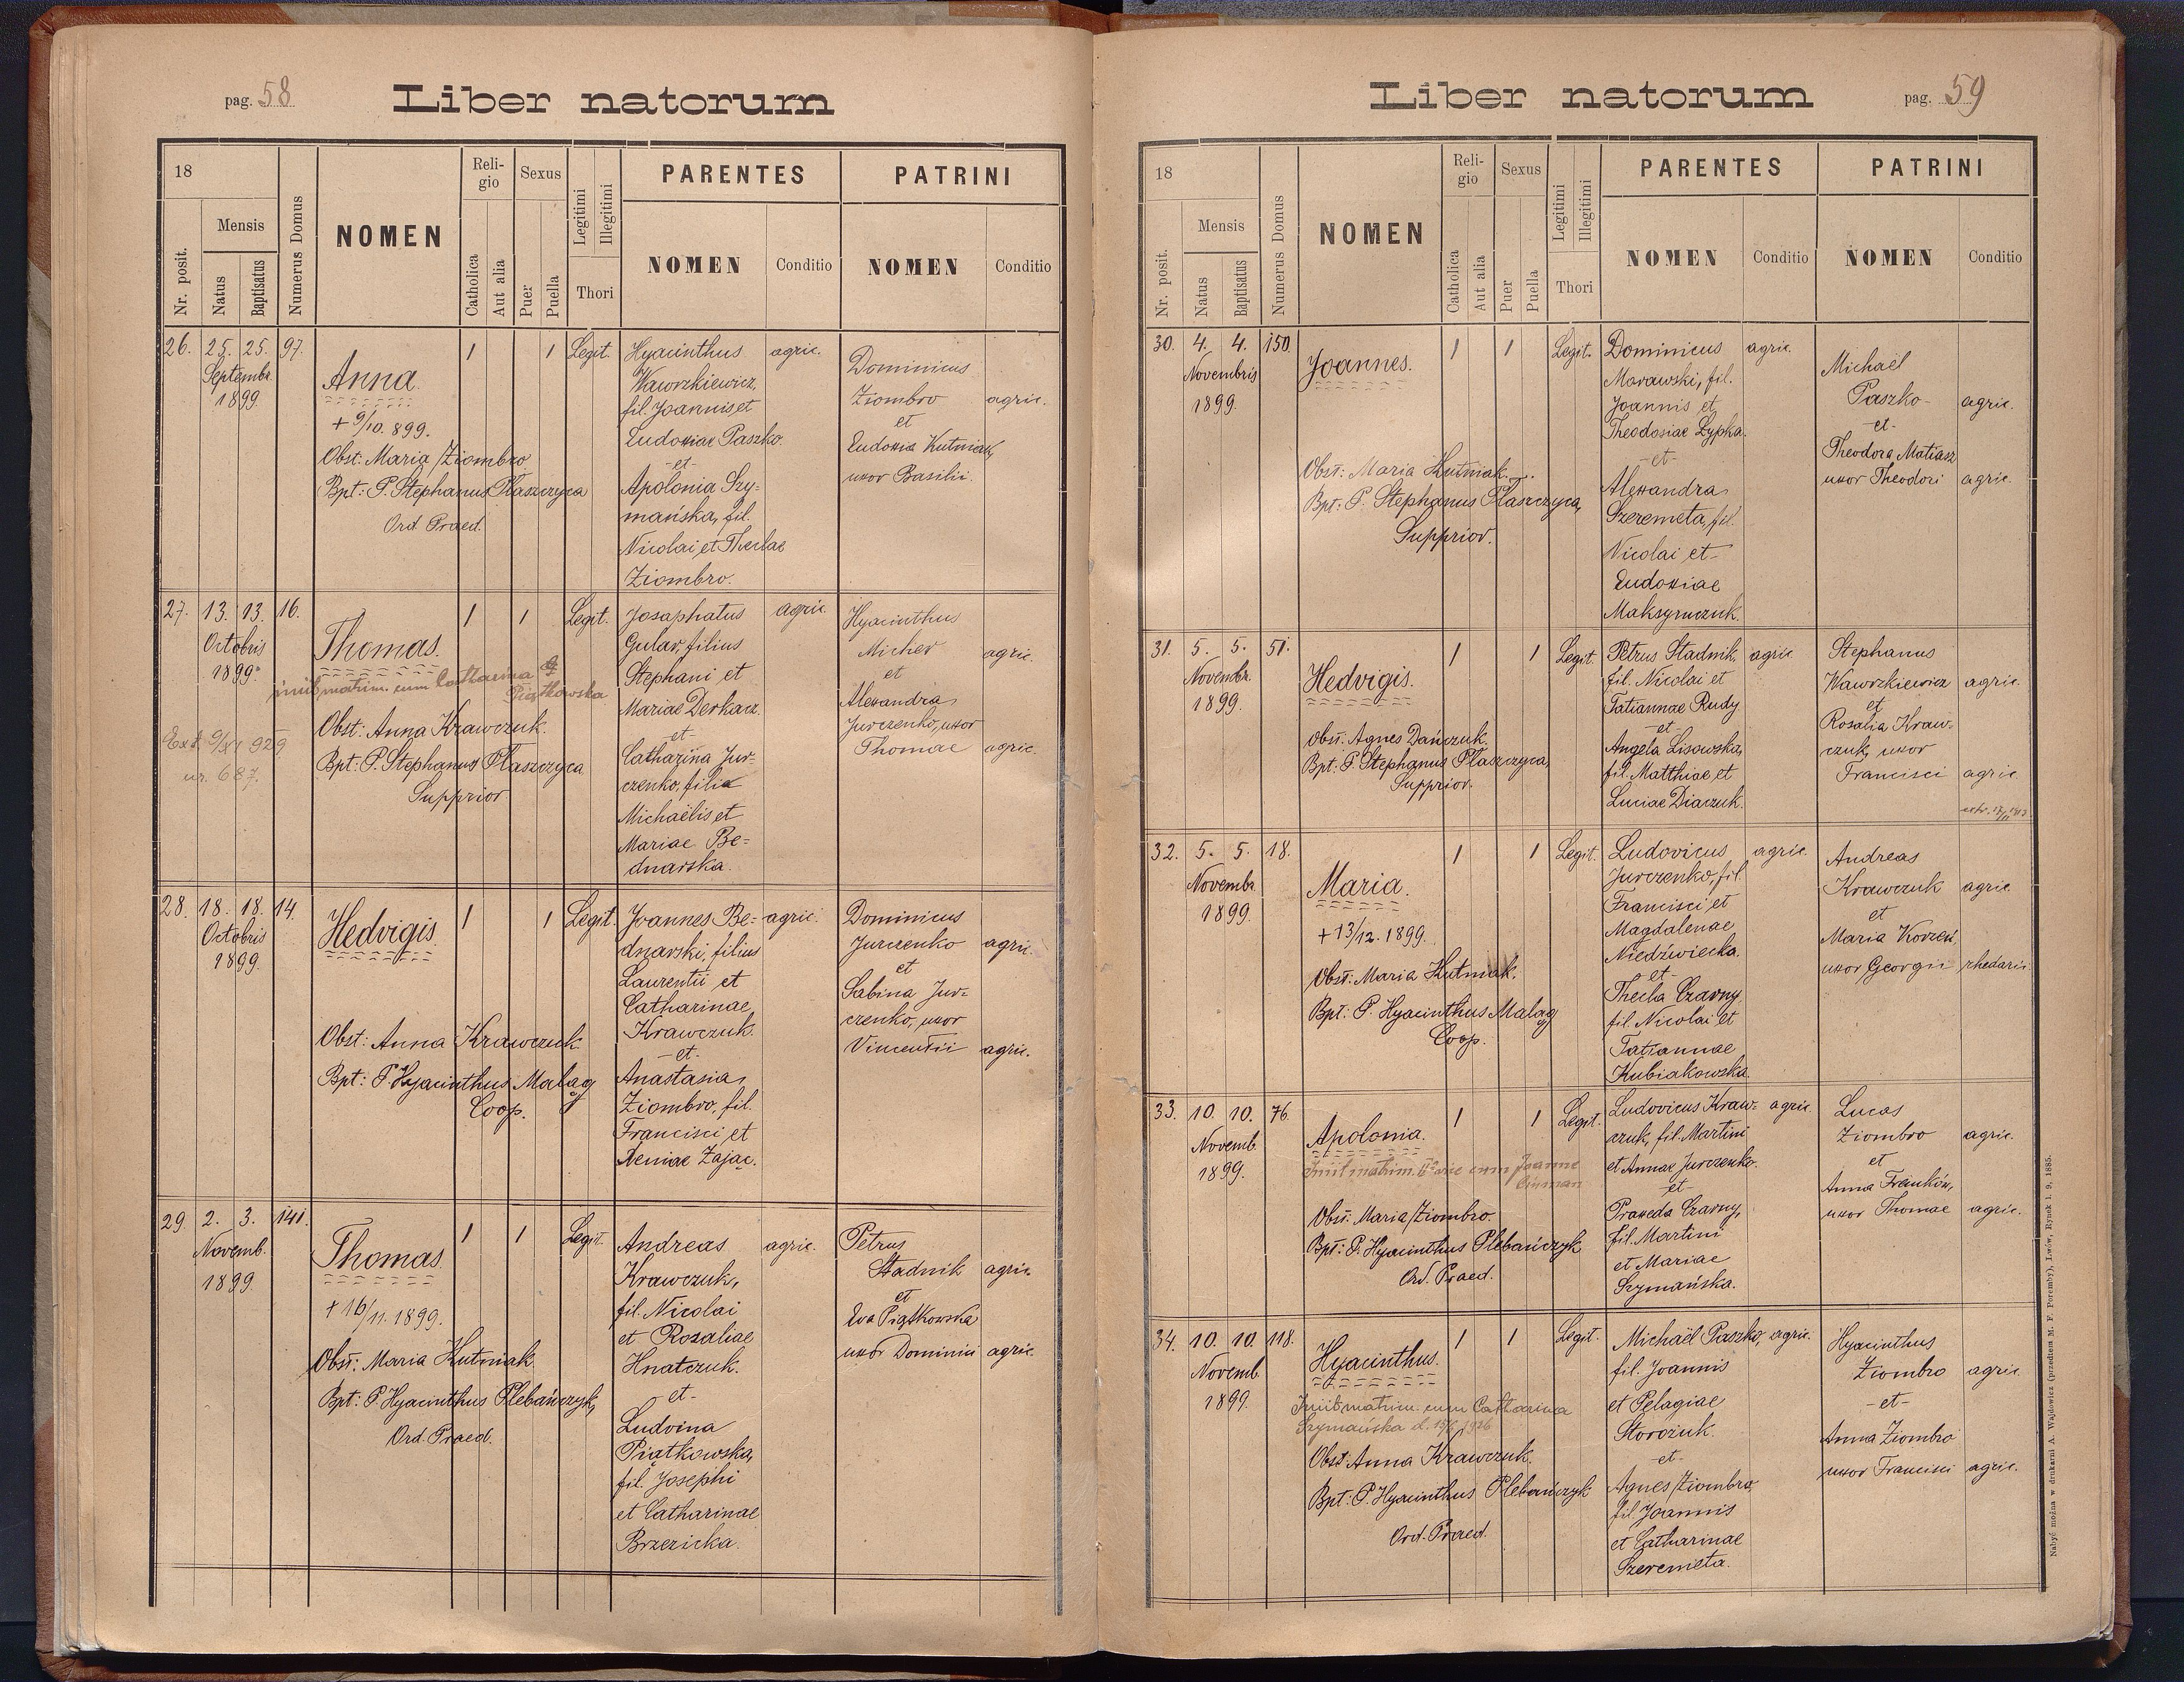 pag. 58
Liber natorum
18
Mensis
Nr. posit.
Natus
Baptisatus
Numerus Domus
NOMEN
Reli-
gio
Catholica
Aut alia
Sexus
Puer
Puella
Legitimi
Illegitimi
Thori
PARENTES
NOMEN
Conditio
PATRINI
NOMEN
Conditio
26. 25. 25. 97.
Septembr.
1899.
Anna.
+ 9/10. 899.
Obst: Maria Ziombro
Bpt: P. Stephanus Płaszczyca
Ord. Praed.
1 1 Legit.
Hyacinthus
Wawrzkiewicz,
fil. Joannis et
Eudoxiae Paszko.
-et-
Apolonia Szy=
mańska, fil.
Nicolai et Theclae
Ziombro.
agric.
Dominicus
Ziombro
et
Eudoxia Kutniak,
uxor Basilii.
agric.
27. 13. 13. 16.
Octobris
1899.
Thomas.
iniit matrim. cum Catharina
Piątkowska
Ext. 9/XI 929
nr. 687.
Obst: Anna Krawczuk.
Bpt: P. Stephanus Płaszczyca
Supprior
1 1 Legit.
Josaphatus
Gular, filius
Stephani et
Mariae Derkacz.
-et-
Catharina Jur-
czenko, filia
Michaëlis et
Mariae Be=
dnarska.
agric.
Hyacinthus
Micher
et
Alexandra
Jurczenko, uxor
Thomae
agric.
agric.
28. 18. 18. 14.
Octobris
1899.
Hedvigis.
Obst: Anna Krawczuk
Bpt: P. Hyacinthus Malag
Coop.
1 1 Legit.
Joannes Be=
dnarski, filius
Laurentii et
Catharinae
Krawczuk.
-et-
Anastasia
Ziombro, fil.
Francisci et
Xeniae Zając.
agric.
Dominicus
Jurczenko
et
Sabina Jur=
czenko, uxor
Vincentii
agric.
agric.
29. 2. 3. 141.
Novemb.
1899.
Thomas.
+ 16/11. 1899.
Obst: Maria Kutniak
Bpt: P. Hyacinthus Plebańczyk,
Ord. Praed.
1 1 Legit.
Andreas
Krawczuk,
fil. Nicolai
et Rozaliae
Hnatczuk.
-et-
Ludvina
Piątkowska,
fil. Josephi
et Catharinae
Brzezicka.
agric.
Petrus
Stadnik
et
Eva Piątkowska
uxor Dominici
agric.
agric.
pag. 59
Liber natorum
18
Mensis
Nr. posit.
Natus
Baptisatus
Numerus Domus
NOMEN
Reli-
gio
Catholica
Aut alia
Sexus
Puer
Puella
Legitimi
Illegitimi
Thori
PARENTES
NOMEN
Conditio
PATRINI
NOMEN
Conditio
30. 4. 4. 150.
Novembris
1899.
Joannes.
Obst: Maria Kutniak.
Bpt: P. Stephanus Płaszczyca,
Supprior.
1 1 Legit.
Dominicus
Morawski, fil.
Joannis et
Theodosiae Łypka.
-et-
Alexandra
Szeremeta, fil.
Nicolai et
Eudoxiae
Maksymczuk.
agric.
Michaël
Paszko
-et-
Theodora Matiasz
uxor Theodori
agric.
agric.
31. 5. 5. 51.
Novembr.
1899.
Hedvigis.
Obst: Agnes Dańczuk.
Bpt: P. Stephanus Płaszczyca,
Supprior.
1 1 Legit.
Petrus Stadnik,
fil. Nicolai et
Tatiannae Rudy
-et-
Angela Lisowska,
fil. Matthiae et
Luciae Diaczuk.
agric.
Stephanus
Wawrzkiewicz
et
Rosalia Kraw-
czuk, uxor
Francisci
agric.
agric.
32. 5. 5. 18.
Novembr.
1899.
Maria.
+ 13/12. 1899.
Obst: Maria Kutniak.
Bpt: P. Hyacinthus Malag
Coop.
1 1 Legit.
Ludovicus
Jurczenko, fil.
Francisci et
Magdalenae
Niedźwiecka.
-et-
Thecla Czarny,
fil. Nicolai et
Tatiannae
Kubiakowska.
agric.
Andreas
Krawczuk
et
Maria Korzeń,
uxor Georgii
agric.
rhedarii
33. 10. 10. 76.
Novemb.
1899.
Apolonia.
Iniit matrim. cum Joanne
Obst: Maria Ziombro.
Bpt: P. Hyacinthus Plebańczyk
Ord. Praed.
1 1 Legit.
Ludovicus Kraw=
czuk, fil. Martini
et Annae Jurczenko.
-et-
Praxeda Czarny,
fil. Martini
et Mariae
Szymańska.
agric.
Lucas
Ziombro
et
Anna Freuków,
uxor Thomae
agric.
agric.
34. 10. 10. 118.
Novemb.
1899.
Hyacinthus.
Iniit matrim. cum Catharina
Szymańska
Obst: Anna Krawczuk.
Bpt: P. Hyacinthus Plebańczyk
Ord. Praed.
1 1 Legit.
Michaël Paszko,
fil. Joannis
et Pelagiae
Storożuk.
-et-
Agnes Ziombro
fil. Joannis
et Catharinae
Szeremeta.
agric.
Hyacinthus
Ziombro
-et-
Anna Ziombro
uxor Francisci
agric.
agric.
Nabyć można w drukarni A. Wajdowicz (przedtem M. F. Poremby), Lwów, Rynek l. 9, 1885.